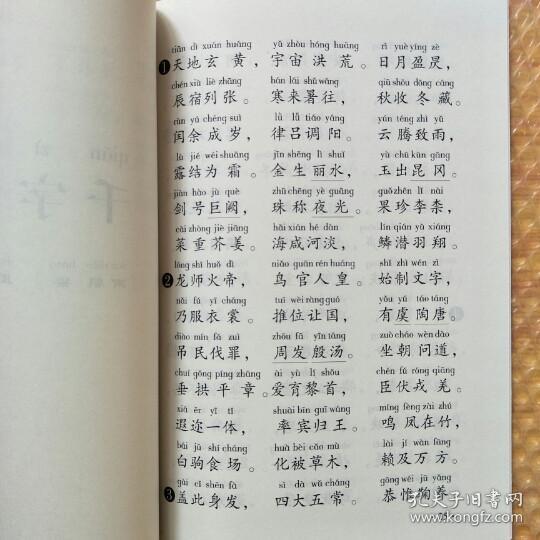 tiān dì xuán huāng yǔ zhòu hóng huāng rì yuè yíng zè
❶天地玄黄，宇宙洪荒。日月盈昃，
chén xiù liè zhāng hán lái shǔ wǎng qiū shōu dōng cáng
辰宿列张。寒来暑往，秋收冬藏。
rùn yú chéng suì lǜ lǚ tiáo yáng yún téng zhì yǔ
闰余成岁，律吕调阳。云腾致雨，
lù jié wéi shuāng jīn shēng lì shuǐ yù chū kūn gāng
露结为霜。金生丽水，玉出昆冈。
jiàn hào jù què zhū chēng yè guāng guǒ zhēn lǐ nài
剑号巨阙，珠称夜光。果珍李柰，
cài zhòng jiè jiāng hǎi xián hé dàn lín qián yǔ xiáng
菜重芥姜。海咸河淡，鳞潜羽翔。
lóng shī huǒ dì niǎo guān rén huáng shǐ zhì wén zì
❷龙师火帝，鸟官人皇。始制文字，
nǎi fú yī cháng tuī wèi ràng guó yǒu yú táo táng
乃服衣裳。推位让国，有虞陶唐。
diào mín fá zuì zhōu fā yīn tāng zuò cháo wèn dào
吊民伐罪，周发殷汤。坐朝问道，
chuí gǒng píng zhāng ài yù lí shǒu chén fú róng qiāng
垂拱平章。爱育黎首，臣伏戎羌。
xiá ěr yī tǐ shuài bīn guī wáng míng fèng zài zhú
遐迩一体，率宾归王。鸣凤在竹，
bái jū shí cháng huà bèi cǎo mù lài jí wàn fāng
白驹食场。化被草木，赖及万方。
gài cǐ shēn fà sì dà wǔ cháng gōng wéi jū yǎng
❸盖此身发，四大五常。恭惟鞠养，
孔夫子旧书网
www.kongfz.com